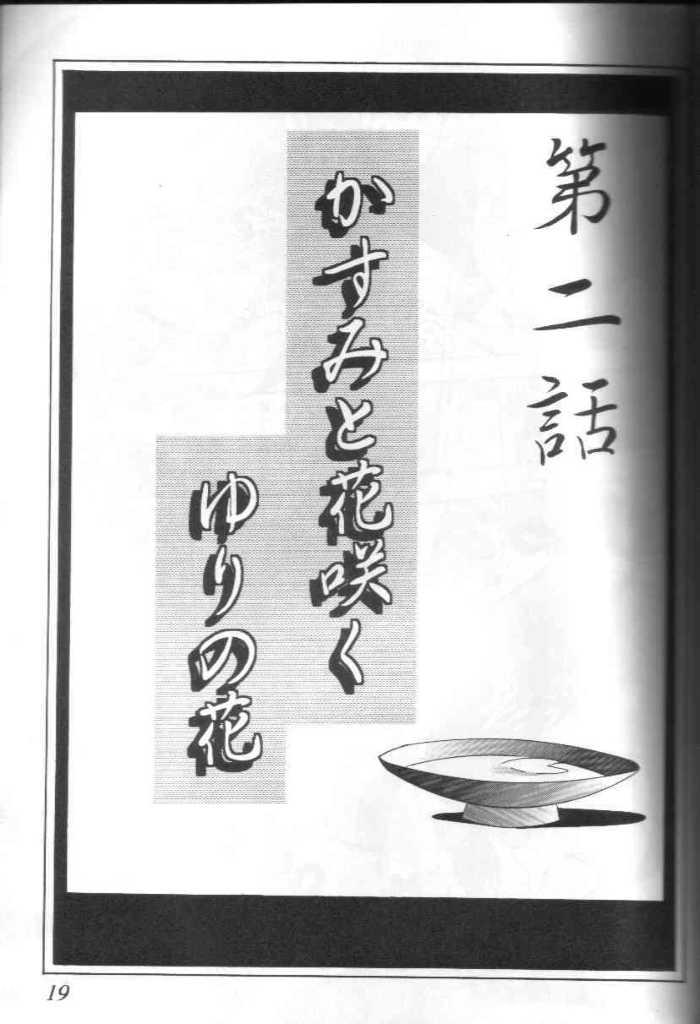 第二話
かすみと花咲く
ゆりの花
19